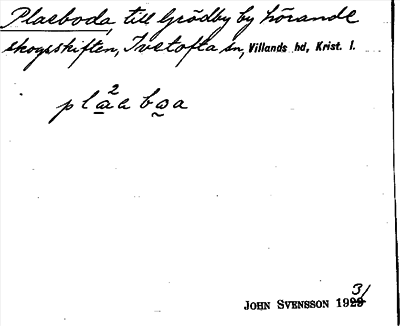 Plaeboda, till Grödby by hörande
skogsskiften, Ivetofta sn, Villands hd, Krist. l.
2
plaabɷa
31
JOHN SVENSSON 1929